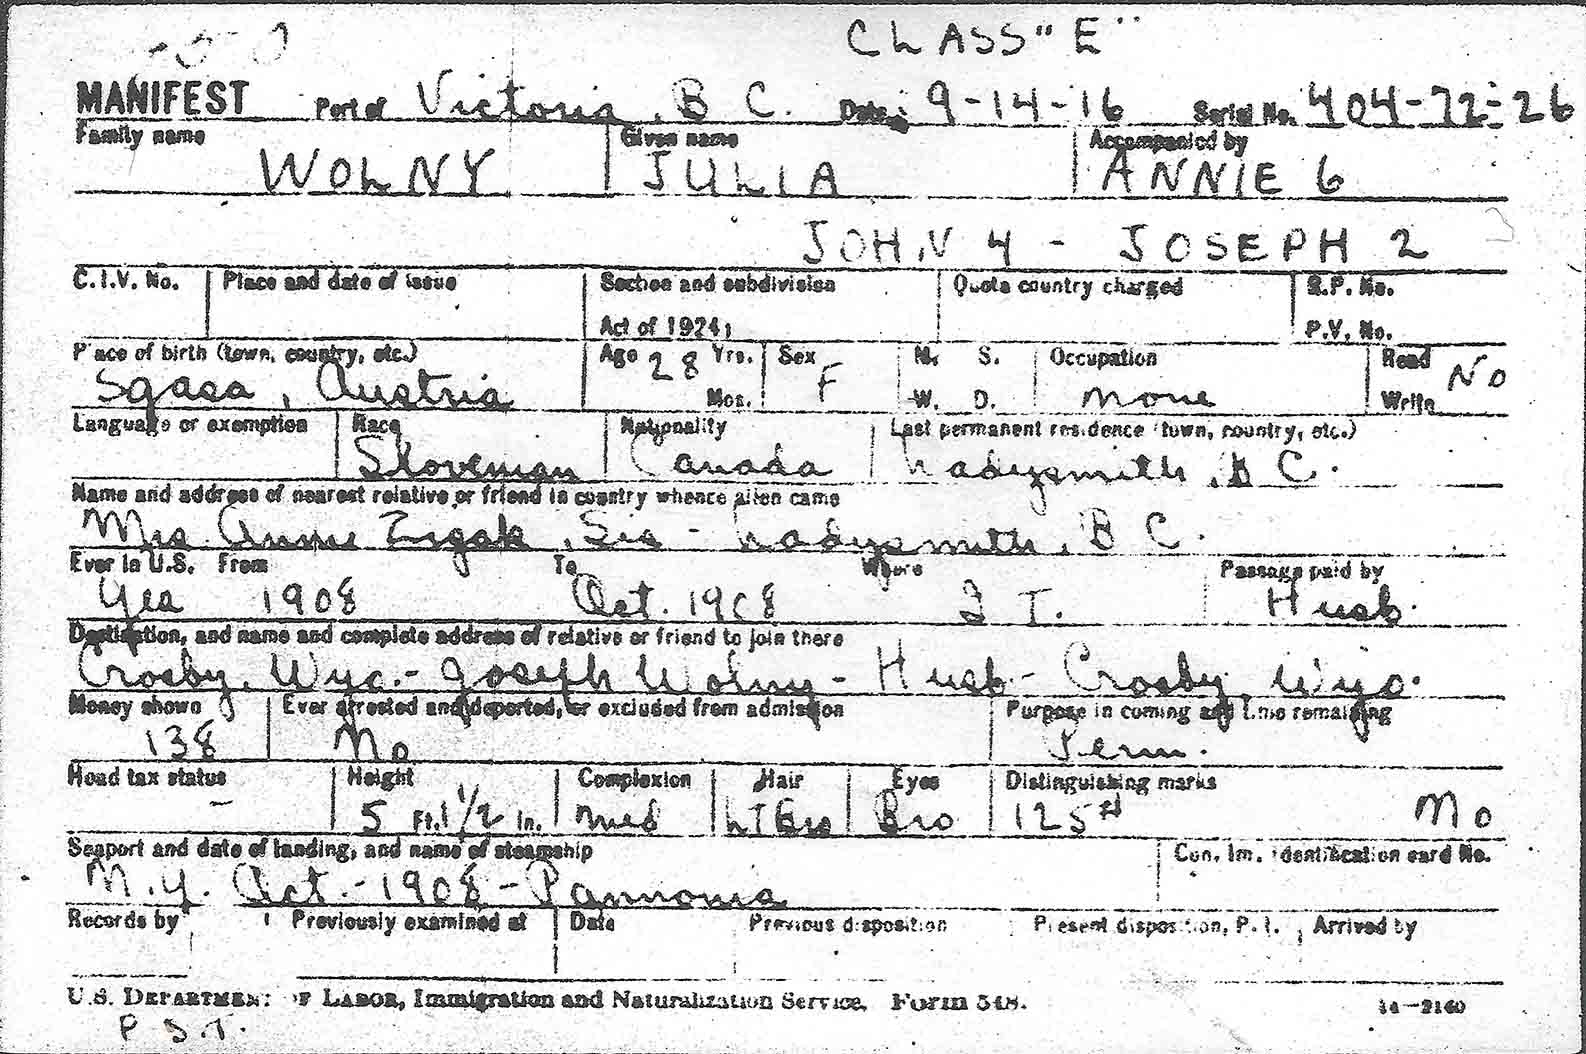 CLASS "E"
MANIFEST Port of Victoria, B C. Date 9-14-16 Serial No. 404-72-26
Family name Given name Accompanied by
WOLNY JULIA ANNIE 6
JOHN 4 - JOSEPH 2
C.I.V. No. Place and date of issue Section and subdivision Quota country charged R.P. No.
Act of 1924 P.V. No.
Place of birth (town, country, etc.) Age 28 Yrs. Sex M. S. Occupation Read No
Sgasa, Austria Mos. F W. D. None Write
Language or exemption Race Nationality Last permanent residence (town, country, etc.)
Slovenian Canada Ladysmith, B C.
Name and address of nearest relative or friend in country whence alien came
Mrs. Annie Zigak, Sis - Ladysmith, B C.
Ever in U.S. From To Where Passage paid by
Yes 1908 Oct. 1908 I T. Husb.
Destination, and name and complete address of relative or friend to join there
Crosby, Wyo. - Joseph Wolny - Husb - Crosby, Wyo.
Money shown Ever arrested and deported, or excluded from admission Purpose in coming and time remaining
138 No Perm.
Head tax status Height Complexion Hair Eyes Distinguishing marks
- 5 Ft. 1 1/2 In. Med Lt Bro Bro 125# No
Seaport and date of landing, and name of steamship Con. Im. Identification card No.
N.Y. Oct. - 1908 - Pannonia
Records by Previously examined at Date Previous disposition Present disposition, P.I. Arrived by
U.S. DEPARTMENT OF LABOR, Immigration and Naturalization Service. Form 548. 14-2160
P.S.T.